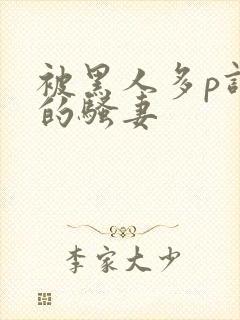 被黑人多p
的骚妻
李家大少